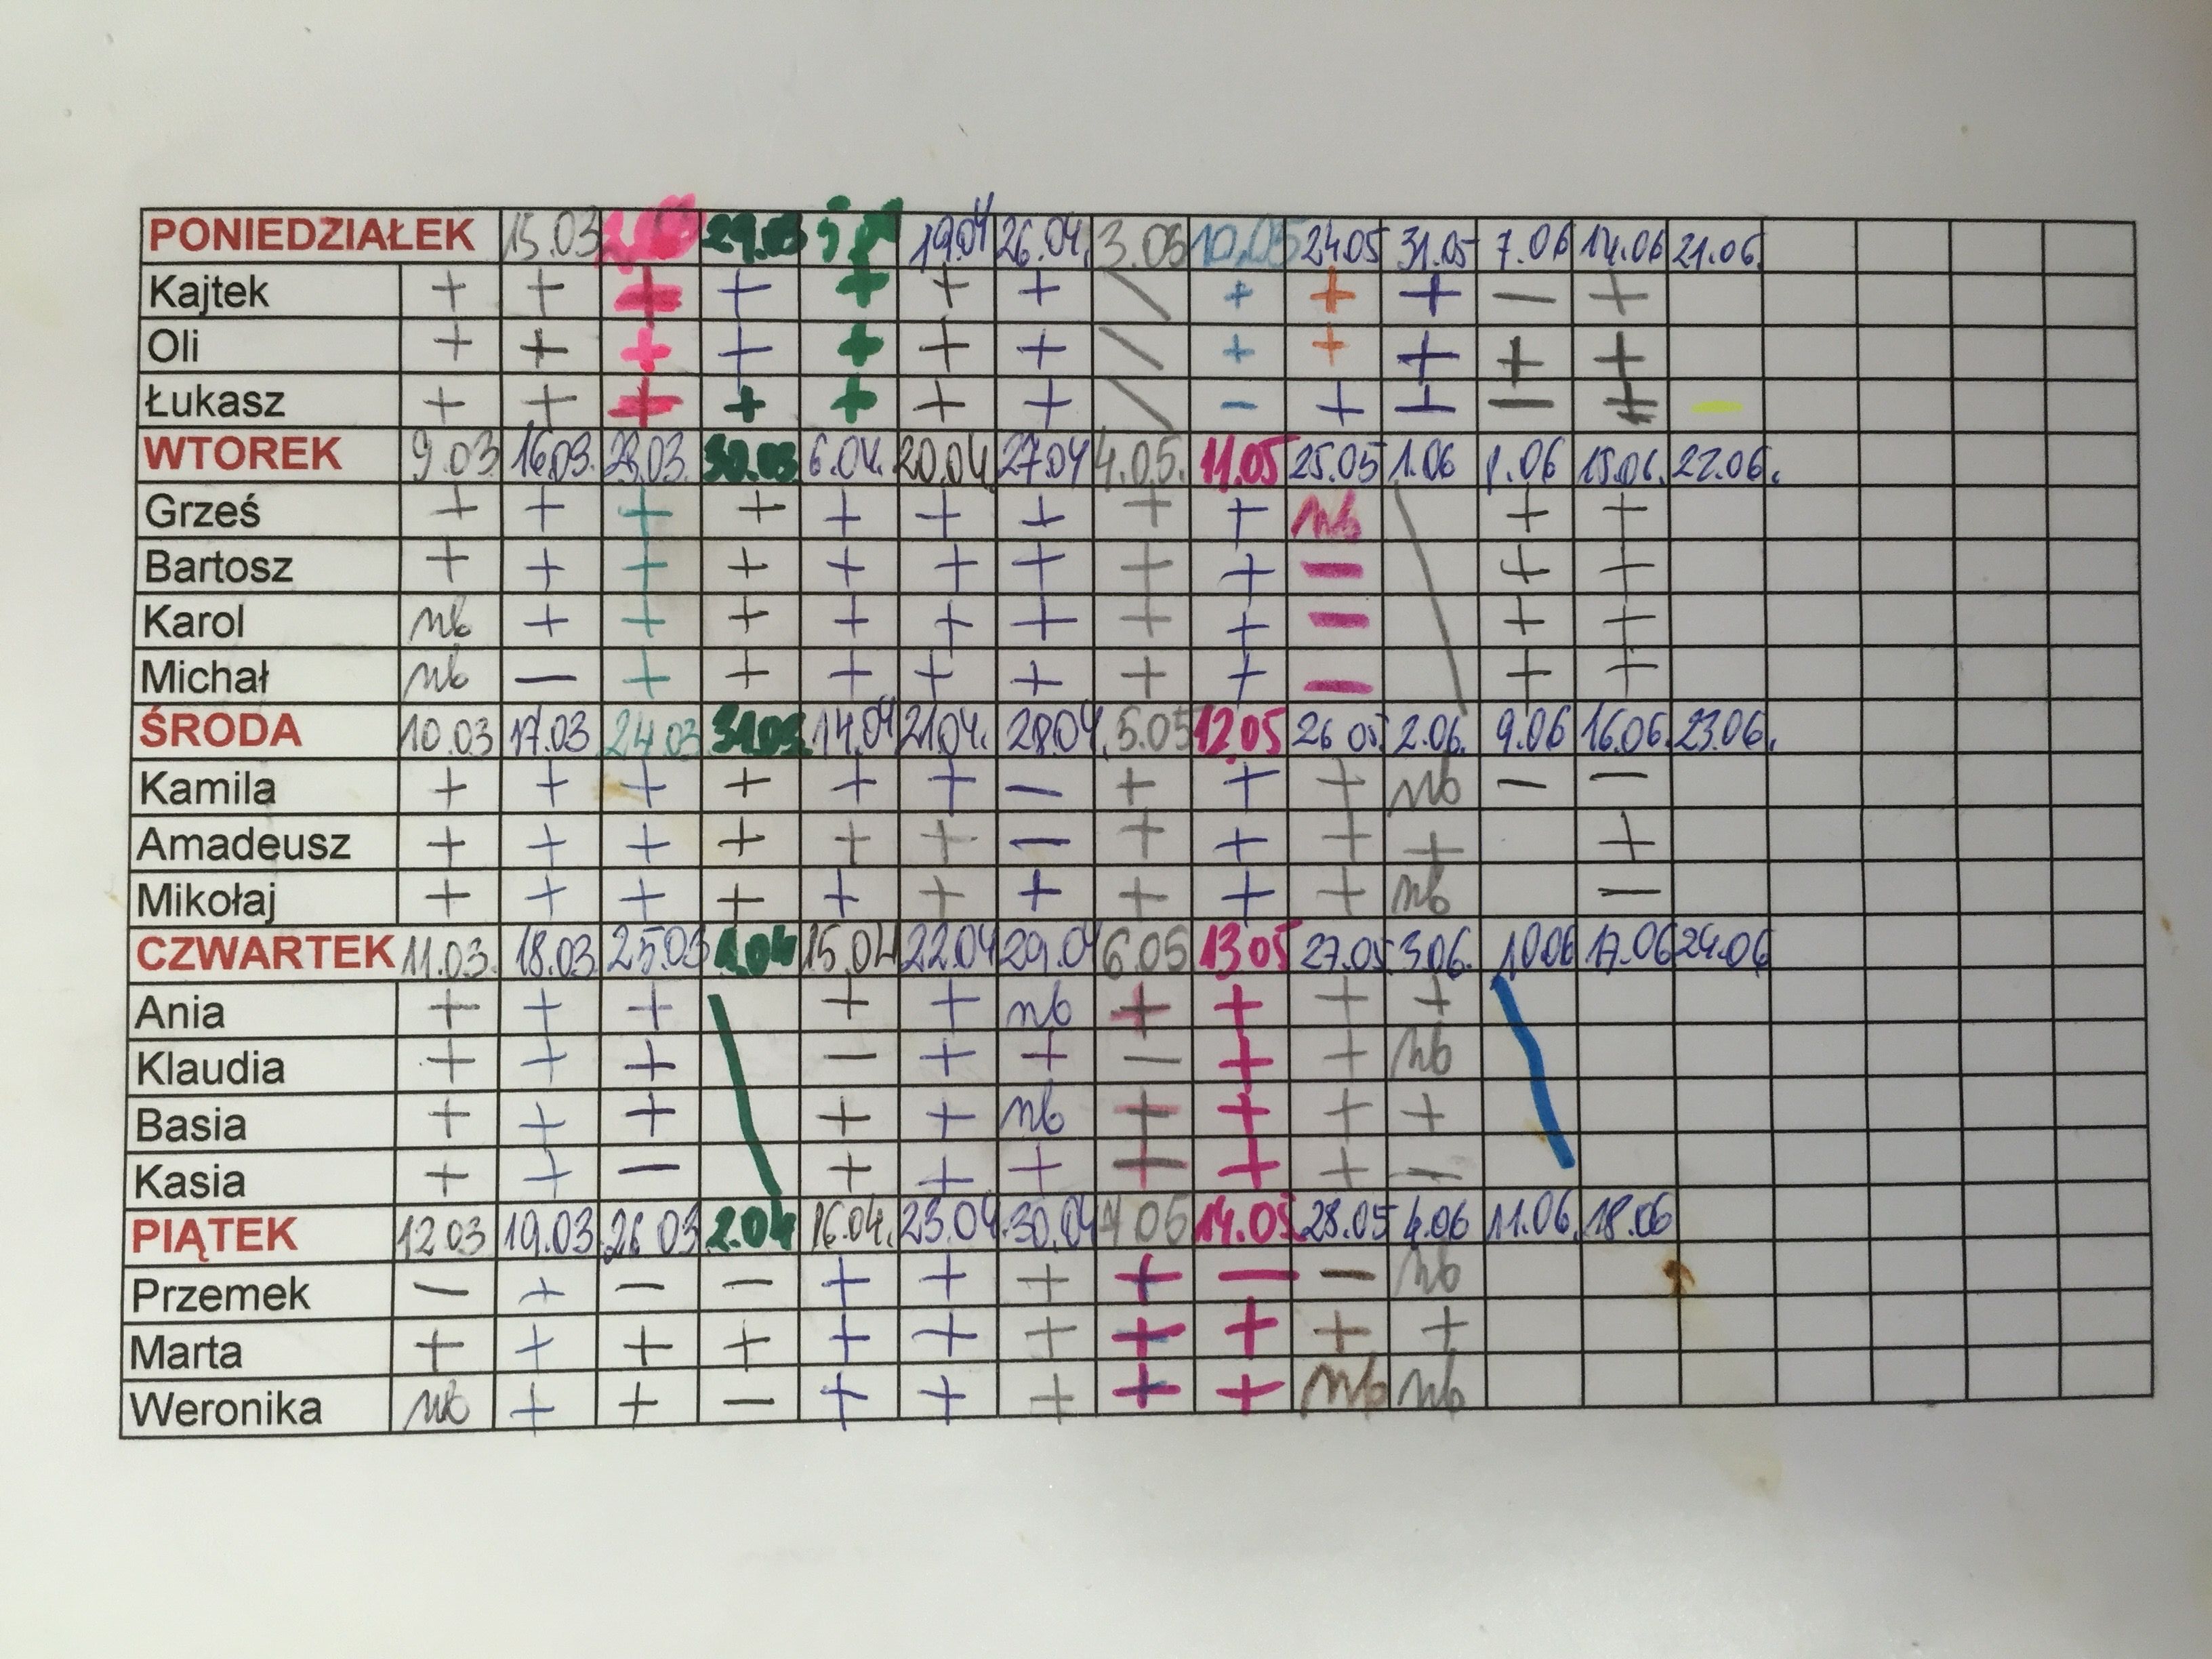 PONIEDZIAŁEK 15.03 29.03 19.04 26.04. 3.05 10.05 24.05 31.05 7.06 14.06 21.06.
Kajtek + + + + + + + \ + + + — +
Oli + + + + + + + \ + + + + +
Łukasz + + + + + + + \ – + + — + –
WTOREK 9.03 16.03. 23.03. 30.03 6.04. 20.04. 27.04 4.05. 11.05 25.05 1.06 8.06 15.06. 22.06.
Grześ + + + + + + + + + nb + +
Bartosz + + + + + + + + + — + +
Karol nb + + + + + + + + — + +
Michał nb — + + + + + + + — + +
ŚRODA 10.03 17.03 24.03 31.03. 14.04 21.04. 28.04. 5.05 12.05 26.05 2.06. 9.06 16.06. 23.06.
Kamila + + + + + + — + + + nb — —
Amadeusz + + + + + + — + + + + +
Mikołaj + + + + + + + + + + nb —
CZWARTEK 11.03. 18.03. 25.03 1.04 15.04 22.04 29.04 6.05 13.05 27.05. 3.06. 10.06 17.06 24.06
Ania + + + \ + + nb + + + + \
Klaudia + + + — + + — + + nb
Basia + + + + + nb + + + +
Kasia + + — + + + + + + —
PIĄTEK 12.03 19.03. 26.03 2.04 16.04. 23.04 30.04 7.05 14.05 28.05 4.06 11.06. 18.06
Przemek — + — — + + + + — — nb
Marta + + + + + + + + + + +
Weronika nb + + — + + + + + nb nb